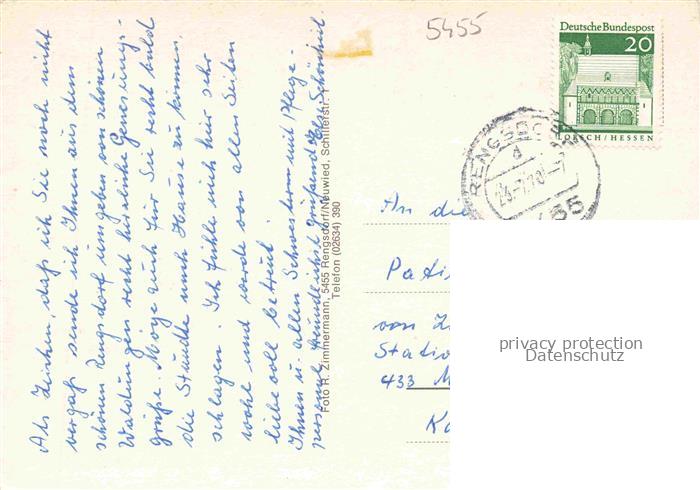 5455
Deutsche Bundespost
20
LORSCH/HESSEN
RENGSDORF
d
23.-7.70-7
5455
Als Zeichen, daß ich Sie noch nicht
vergaß sende ich Ihnen aus dem
schönen Rengsdorf umgeben von schönen
Waldungen recht herzliche Genesungs-
grüße. Möge auch für Sie recht bald
die Stunde nach Hause zu können
schlagen. Ich fühle mich hier sehr
wohl und werde von allen Seiten
liebevoll betreut
Ihnen u. allen Schwestern mit Pflege-
personal freundlichst grüßend Schönheit.
Foto R. Zimmermann, 5455 Rengsdorf/Neuwied, Schillerstr. 1
Telefon (02634) 390
An die
Pati
von
Statio
433 M
Ka
privacy protection
Datenschutz